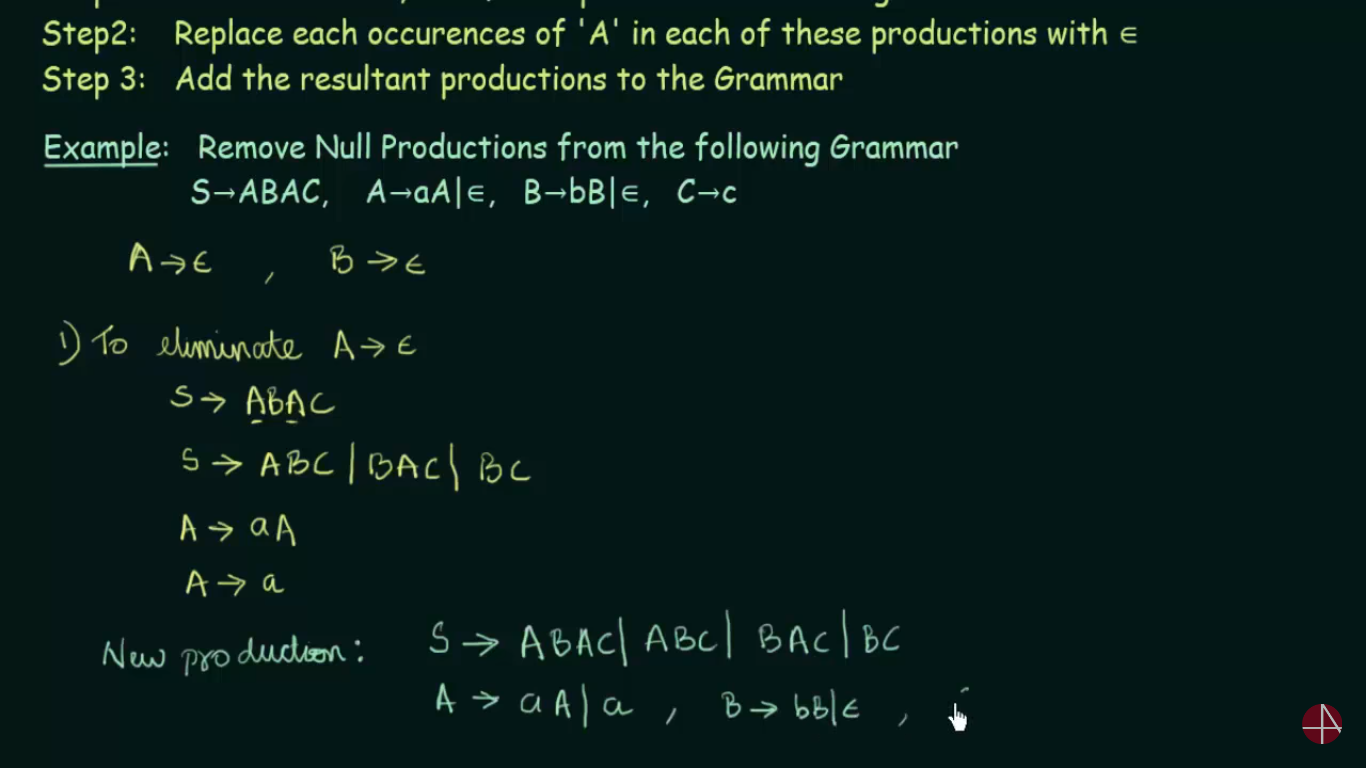 Step2: Replace each occurences of 'A' in each of these productions with ∈
Step 3: Add the resultant productions to the Grammar
Example: Remove Null Productions from the following Grammar
S→ABAC, A→aA|∈, B→bB|∈, C→c
A → ϵ , B → ϵ
1) To eliminate A → ϵ
S → ABAC
S → ABC | BAC | BC
A → aA
A → a
New production: S → ABAC | ABC | BAC | BC
A → aA | a , B → bB | ϵ ,